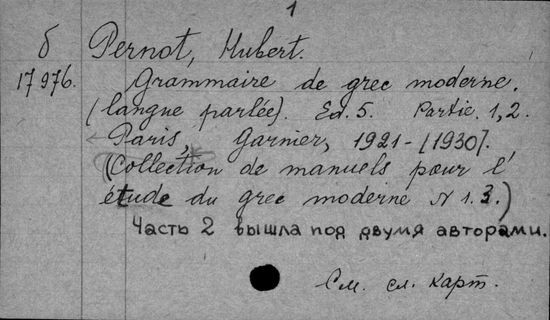 1
б Pernot, Hubert.
17976. Grammaire de grec moderne.
(langue parlée). Ed. 5. Partie. 1, 2.
Paris, Garnier, 1921-[1930].
(Collection de manuels pour l'
étude du grec moderne N 1.3.)
Часть 2 вышла под двумя авторами.
См. сл. карт.